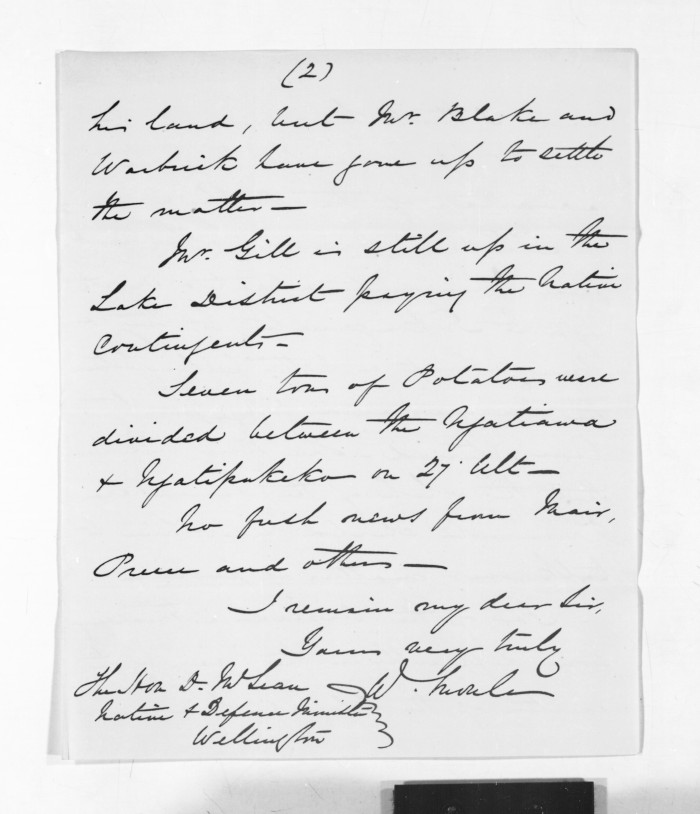 (2)
his land, but Mr. Blake and
Warbrick have gone up to settle
the matter —
Mr. Gill is still up in the
Lake District paying the Native
Contingents —
Seven tons of Potatoes were
divided between the Ngatiawa
& Ngatipukeko on 27 Ult —
No fresh news from Mair,
Preece and others —
I remain my dear Sir,
Yours very truly
W. Moule
The Hon D. McLean
Native & Defence Minister
Wellington